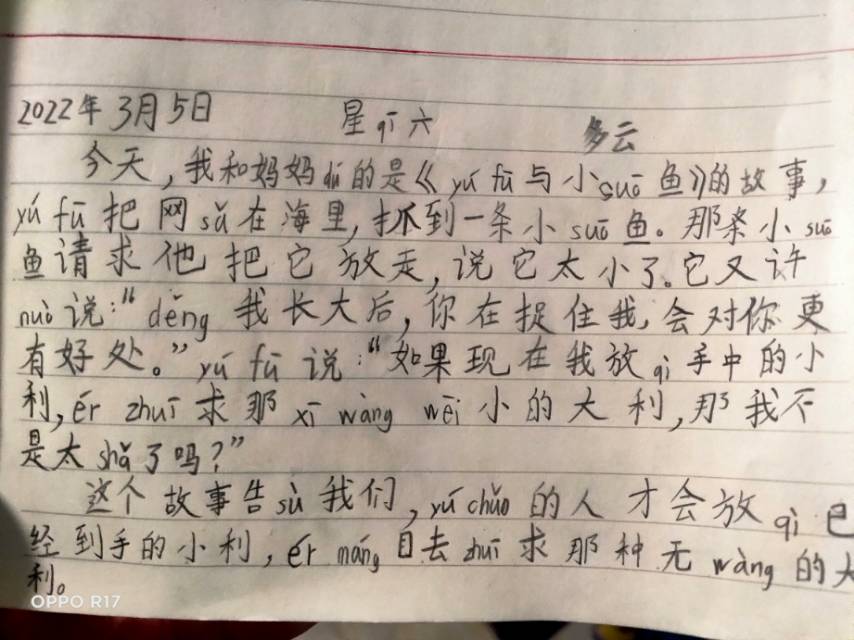 2022年3月5日 星qī六 多云
今天,我和妈妈dú的是《yú fū与小suō鱼》的故事,
yú fū把网sǎ在海里,抓到一条小suō鱼。那条小suō
鱼请求他把它放走,说它太小了。它又许
nuò说:“děng我长大后,你在捉住我,会对你更
有好处。”yú fū说:“如果现在我放qì手中的小
利,ér zhuī求那xī wàng wēi小的大利,那我不
是太shǎ了吗?”
这个故事告sù我们,yú chǔo的人才会放qì已
经到手的小利,ér máng目去zhuī求那种无wàng的大
利。
OPPO R17